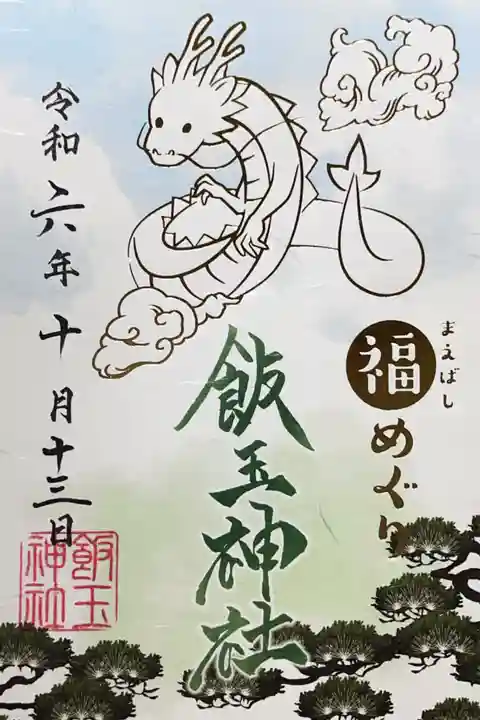 まえばし
福めぐり
飯玉神社
令和六年十月十三日
飯玉
神社